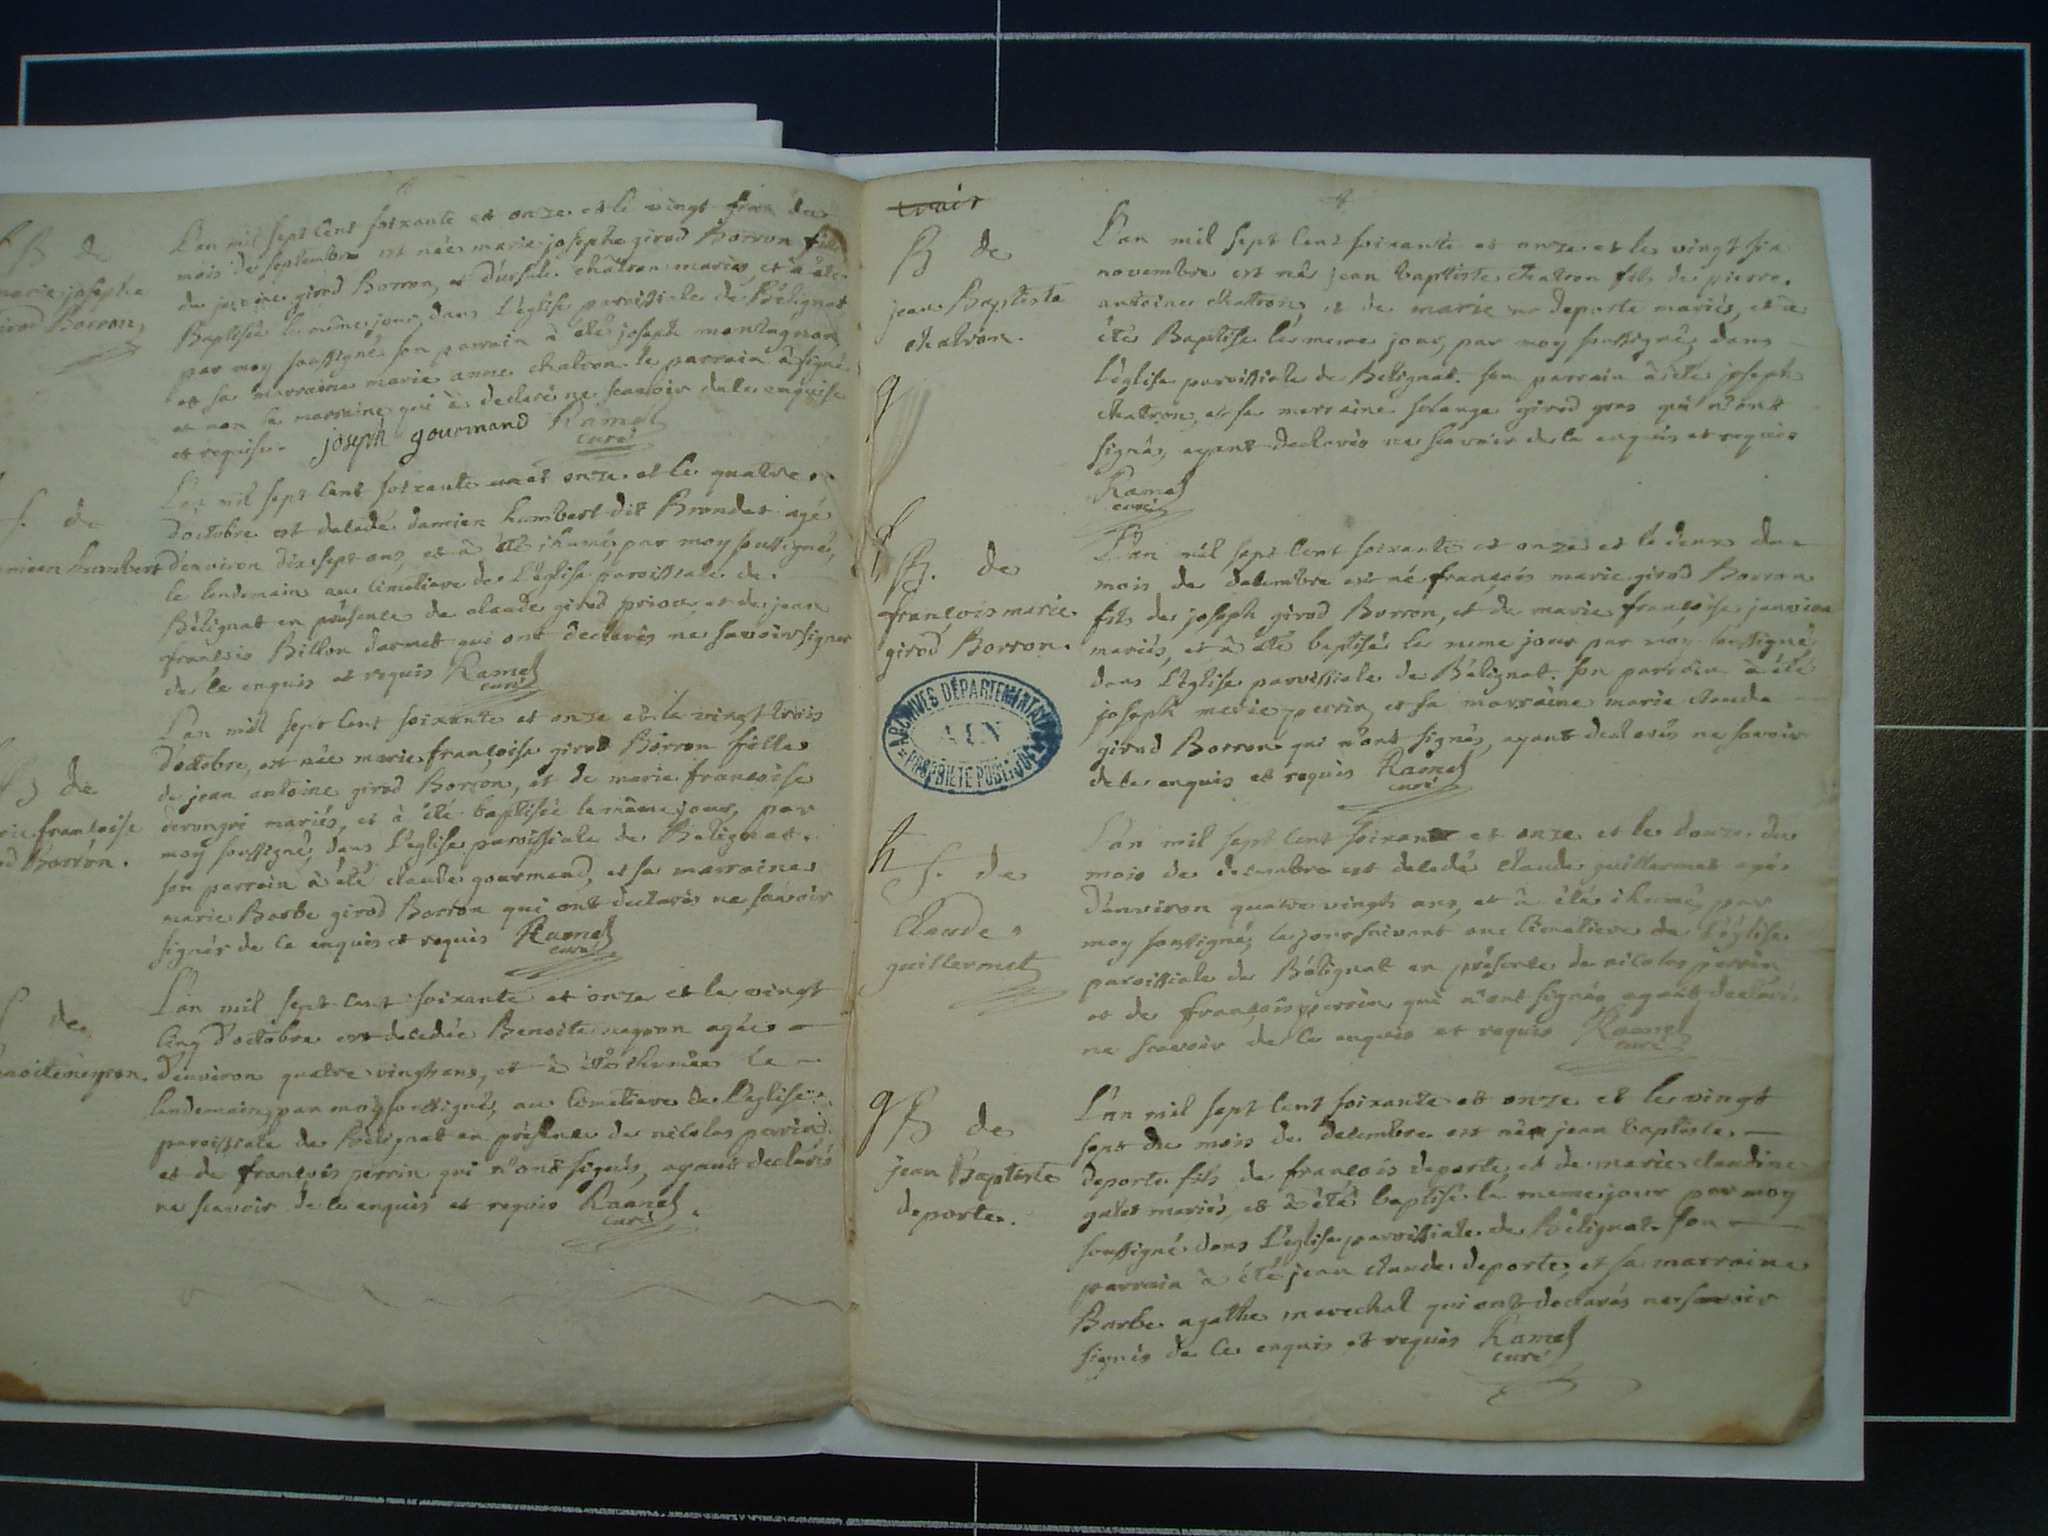 B de
marie josephe
girod Borron,
L'an mil sept cent soixante et onze et le vingt
mois de septembre est née marie josephe girod Borron fille
de girod Borron, et d'ursule chatron mariés, et a été
Baptisée le même jour, dans L'église paroissiale de Bélignat
par moy soussigné son parrain à été joseph
et sa marraine marie anne chatron le parrain à signé
et non la marraine qui à declaré ne scavoir de le enquise
et requise. joseph gourmand Ramel
curé
S. de
damien humbert
L'an mil sept cent soixante et onze et le quatre
d'octobre est decedé damien humbert dit Brondet agé
d'environ dix sept ans, et à été ihumé, par moy soussigné,
le lendemain au cimetiere de L'église paroissiale de
Bélignat en présence de claude girod prior et de jean
françois Billon darmet qui ont declarés ne savoir signer
de ce enquis et requis Ramel
curé
B de
marie françoise
girod Borron.
L'an mil sept cent soixante et onze et le vingt trois
d'octobre, est née marie françoise girod Borron fille
de jean antoine girod Borron, et de marie françoise
mariés, et à été baptisée le même jour, par
moy soussigné, dans L'église paroissiale de Bélignat.
son parrain à été claude gourmand, et sa marraine
marie Barbe girod Borron qui ont declarés ne savoir
signés de ce enquis et requis Ramel
curé
S de
Benoite meyron.
L'an mil sept cent soixante et onze et le vingt
cinq d'octobre est decedée Benoite meyron agée
d'environ quatre vingts ans, et à été ihumée le
lendemain, par moy soussigné, au cimetiere de L'église
paroissiale de Bélignat en présence de nicolas perrin
et de françois perrin qui n'ont signés, ayant declarés
ne scavoir de le enquis et requis Ramel
curé
B de
jean Baptiste
chatron.
L'an mil sept cent soixante et onze et le vingt six
novembre est né jean baptiste chatron fils de pierre
antoine chatron, et de marie deporte mariés, et à
été Baptisé le meme jour, par moy soussigné, dans
L'église paroissiale de Bélignat. son parrain à été joseph
chatron, et sa marraine solange girod gros qui n'ont
signés, ayant declarés ne scavoir de le enquis et requis
Ramel
curé
B. de
françois marie
girod Borron.
L'an mil sept cent soixante et onze et le deux du
mois de decembre est né françois marie girod Borron
fils de joseph girod Borron, et de marie françoise
mariés, et à été baptisé le meme jour par moy soussigné
dans L'église paroissiale de Bélignat. son parrain à été
joseph marie perrin, et sa marraine marie claude
girod Borron qui n'ont signés, ayant declarés ne savoir
de le enquis et requis Ramel
curé
ARCHIVES DÉPARTEMENTALES
AIN
PROPRIÉTÉ PUBLIQUE
h
S. de
Claude
guillermet
L'an mil sept cent soixante et onze et le douze du
mois de decembre est decedé claude guillermet agé
d'environ quatre vingts ans, et à été ihumé, par
moy soussigné, le jour suivant au cimetiere de L'église
paroissiale de Bélignat en présence de nicolas perrin
et de françois perrin qui n'ont signés ayant declarés
ne scavoir de le enquis et requis Ramel
curé
9
B de
jean Baptiste
deporte.
L'an mil sept cent soixante et onze et le vingt
sept du mois de decembre est né jean baptiste
deporte fils de françois deporte, et de marie claudine
galet mariés, et à été baptisé le meme jour par moy
soussigné dans L'église paroissiale de Bélignat. son
parrain à été jean claude deporte, et sa marraine
Barbe agathe marechal qui ont declarés ne savoir
signés de ce enquis et requis Ramel
curé